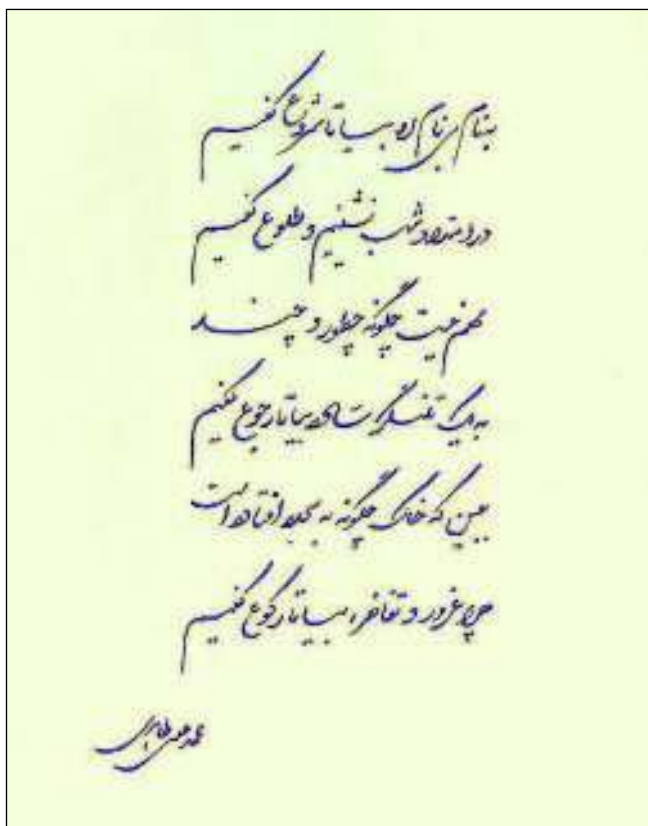 بنام بی نام او بیا تا شروع کنیم
در امتداد شب نشینیم و طلوع کنیم
مهم نیست چگونه چطور و چند
به یک تلنگر ساده بیا تا رجوع کنیم
ببین که خاک چگونه به سجده افتاده است
چرا غرور و تفاخر، بیا تا رکوع کنیم
محمد علی طاهری